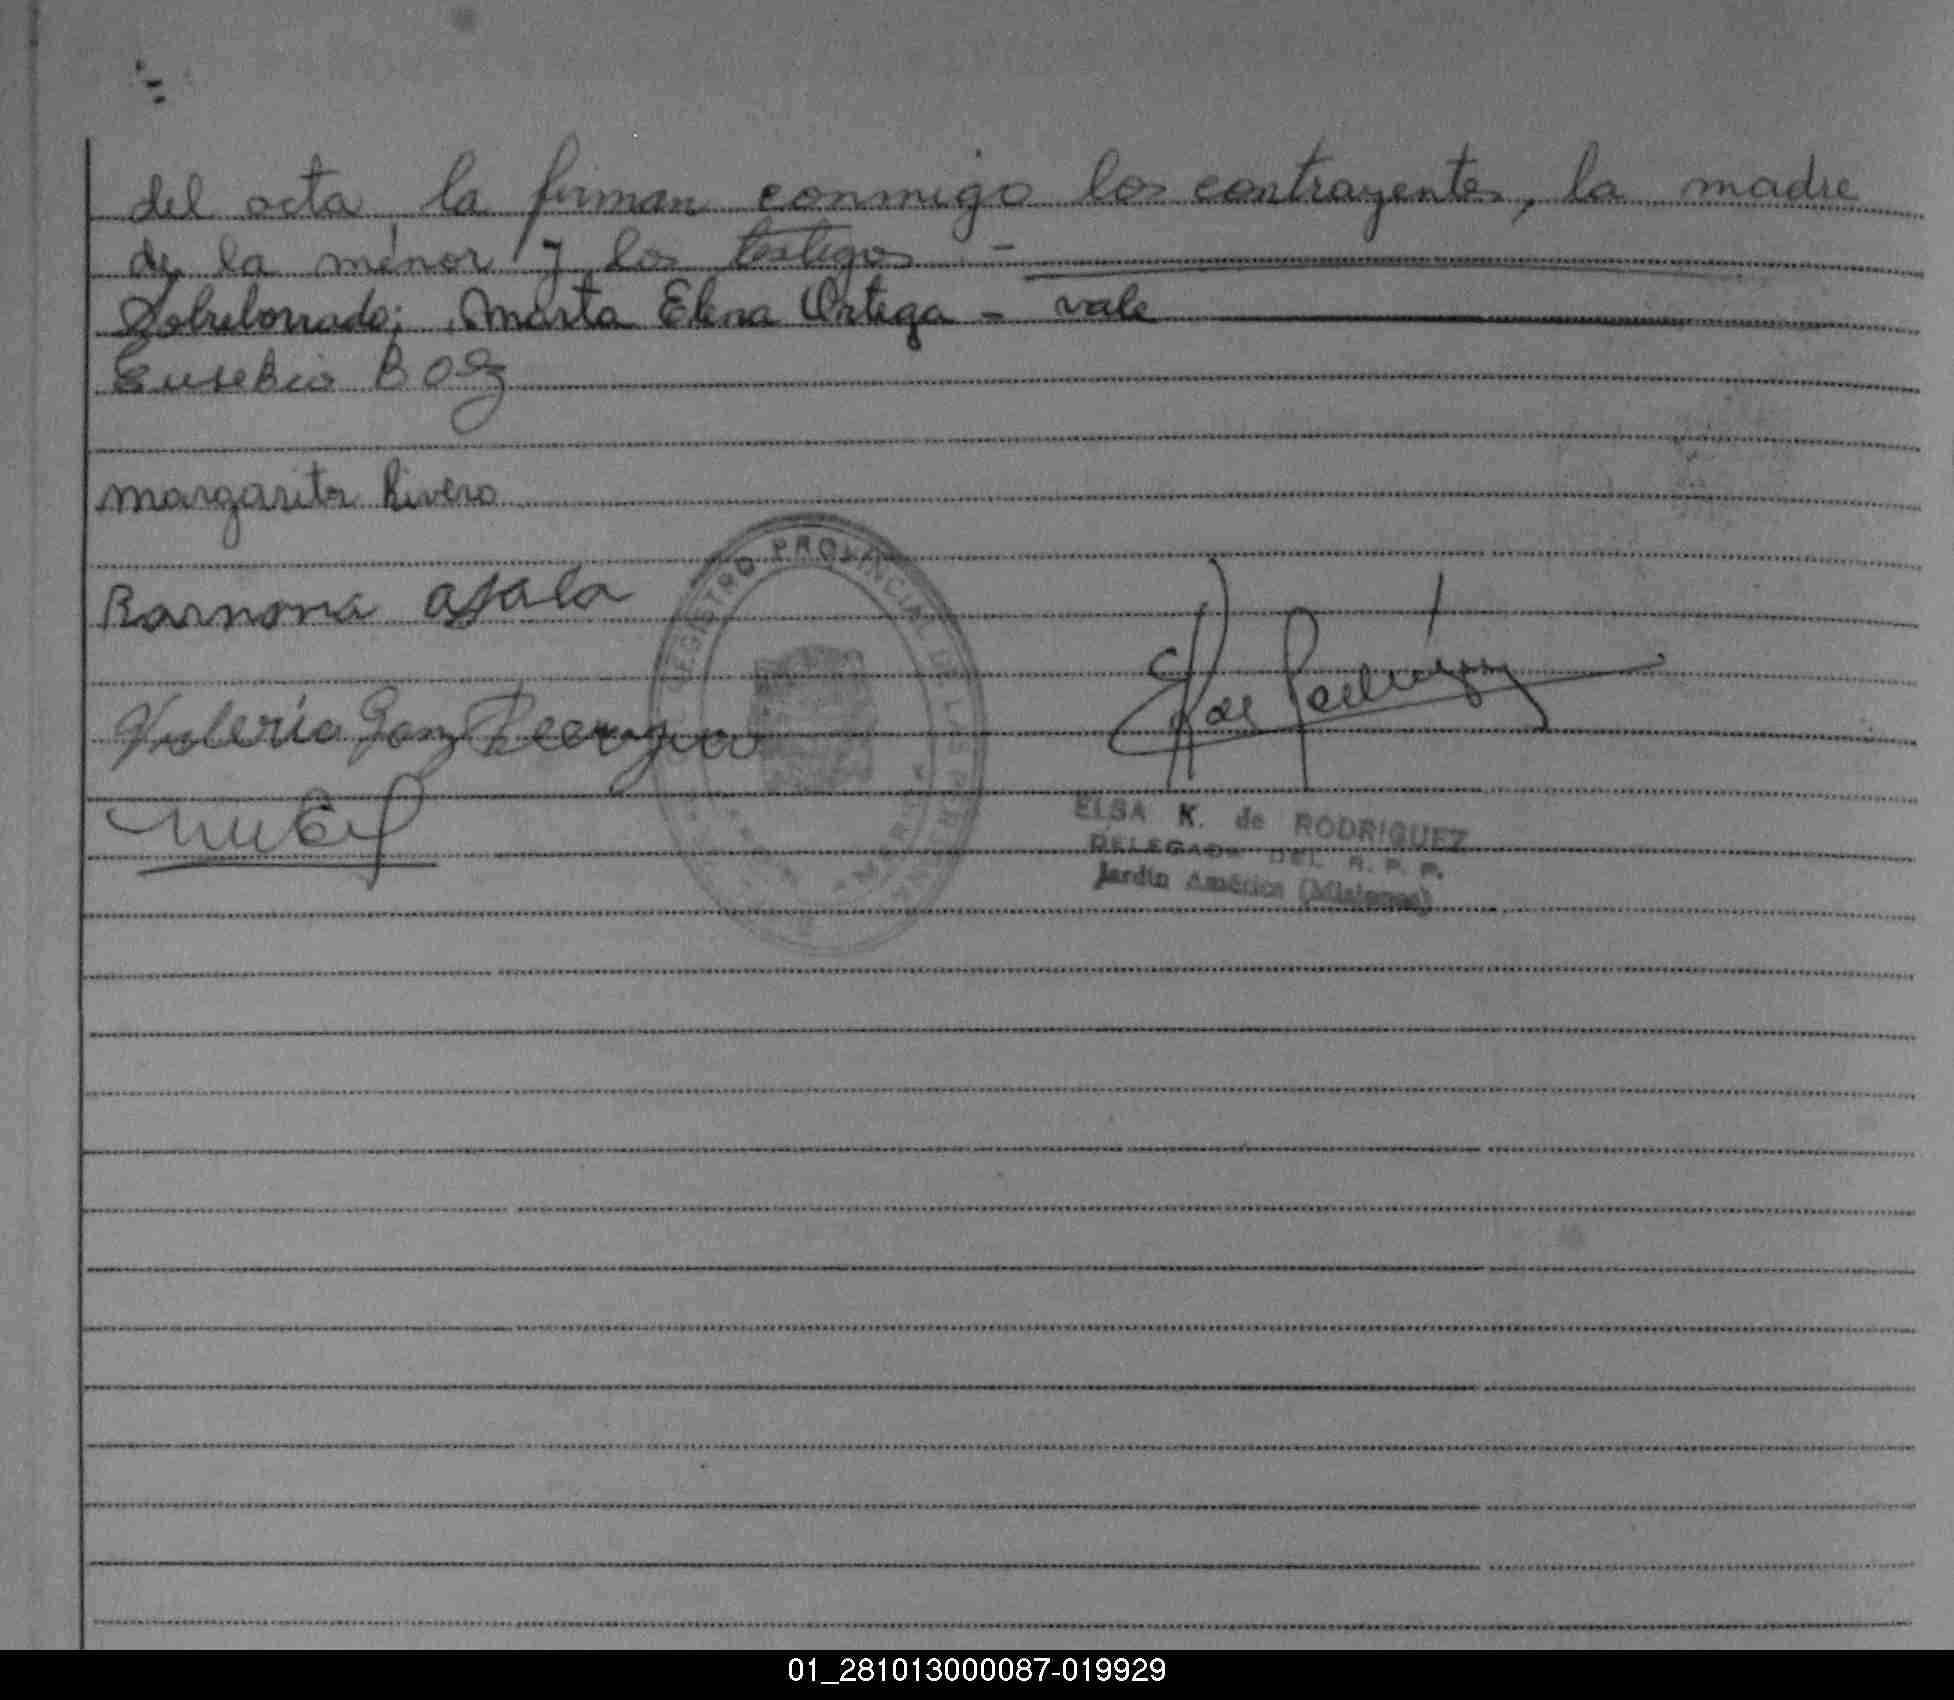 del acta la firman conmigo los contrayentes, la madre
de la ménor y los testigos -
Sobreborrado; Marta Elena Ortega - vale
Eusebio B
margarita Rivero
Ramona aJala
Valerio Gonz
REGISTRO PROVINCIAL DE LAS PERSONAS
Rodríguez
ELSA K. de RODRIGUEZ
DELEGADA DEL R. P. P.
Jardín América (Misiones)
01_281013000087-019929